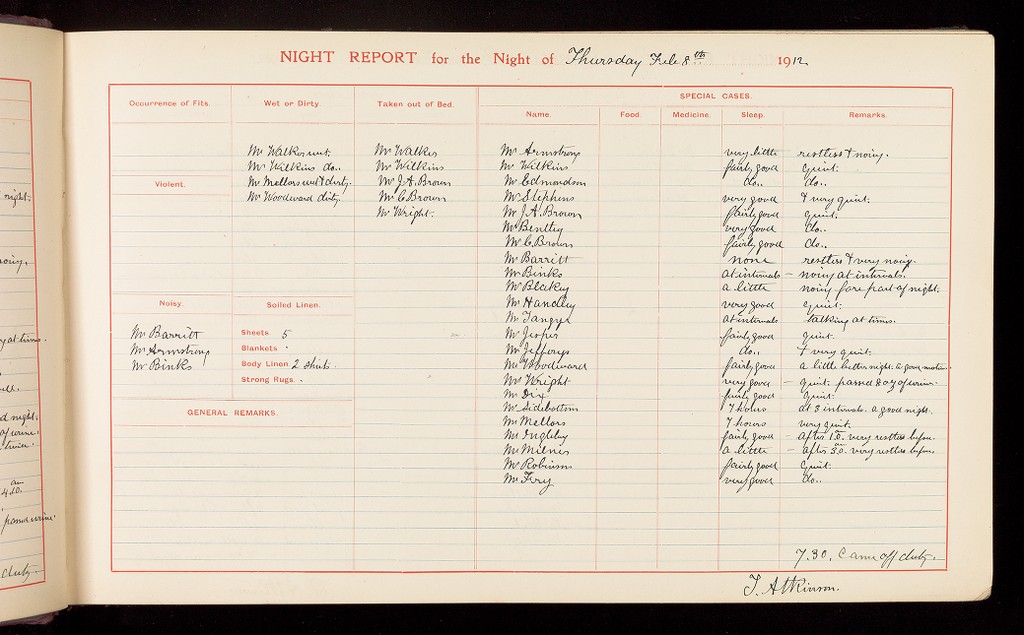 NIGHT REPORT for the Night of Thursday Feb 8th 1912
Occurrence of Fits.
Wet or Dirty.
Mr Walker wet.
Mr Wilkins do..
Mr Mellors wet & dirty.
Mr Woodward dirty.
Taken out of Bed.
Mr Walker
Mr Wilkins
Mr J.A. Brown
Mr C Brown
Mr Wright.
Violent.
Noisy.
Mr Barritt
Mr Armstrong
Mr Binks
Soiled Linen.
Sheets 5
Blankets
Body Linen 2 shirts
Strong Rugs. -
GENERAL REMARKS.
SPECIAL CASES.
Name. Food. Medicine. Sleep. Remarks.
Mr Armstrong very little restless & noisy.
Mr Wilkins fairly good quiet.
Mr Edmondson do.. do..
Mr Stephens very good & very quiet.
Mr J.A. Brown fairly good quiet.
Mr Bentley very good do..
Mr C. Brown fairly good do..
Mr Barritt none restless & very noisy.
Mr Binks at intervals - noisy at intervals.
Mr Blakey a little noisy fore part of night.
Mr Handley very good quiet.
Mr Tangye at intervals talking at times.
Mr Jesper fairly good quiet.
Mr Jefferys do.. & very quiet.
Mr Woodward fairly good a little better night. a good motion.
Mr Wright very good - quiet. passed oz of urine.
Mr Dix fairly good quiet.
Mr Sidebottom 7 hours at 3 intervals. a good night.
Mr Mellors 7 hours very quiet.
Mr Ingleby fairly good - after 1.0. very restless before.
Mr Milnes a little - after 3.0. very restless before.
Mr Robinson fairly good quiet.
Mr Fery very good do..
7.30. Came off duty.
T. Atkinson.
night.
noisy.
at times.
night.
of urine.
am
4.20.
passed urine.
duty.